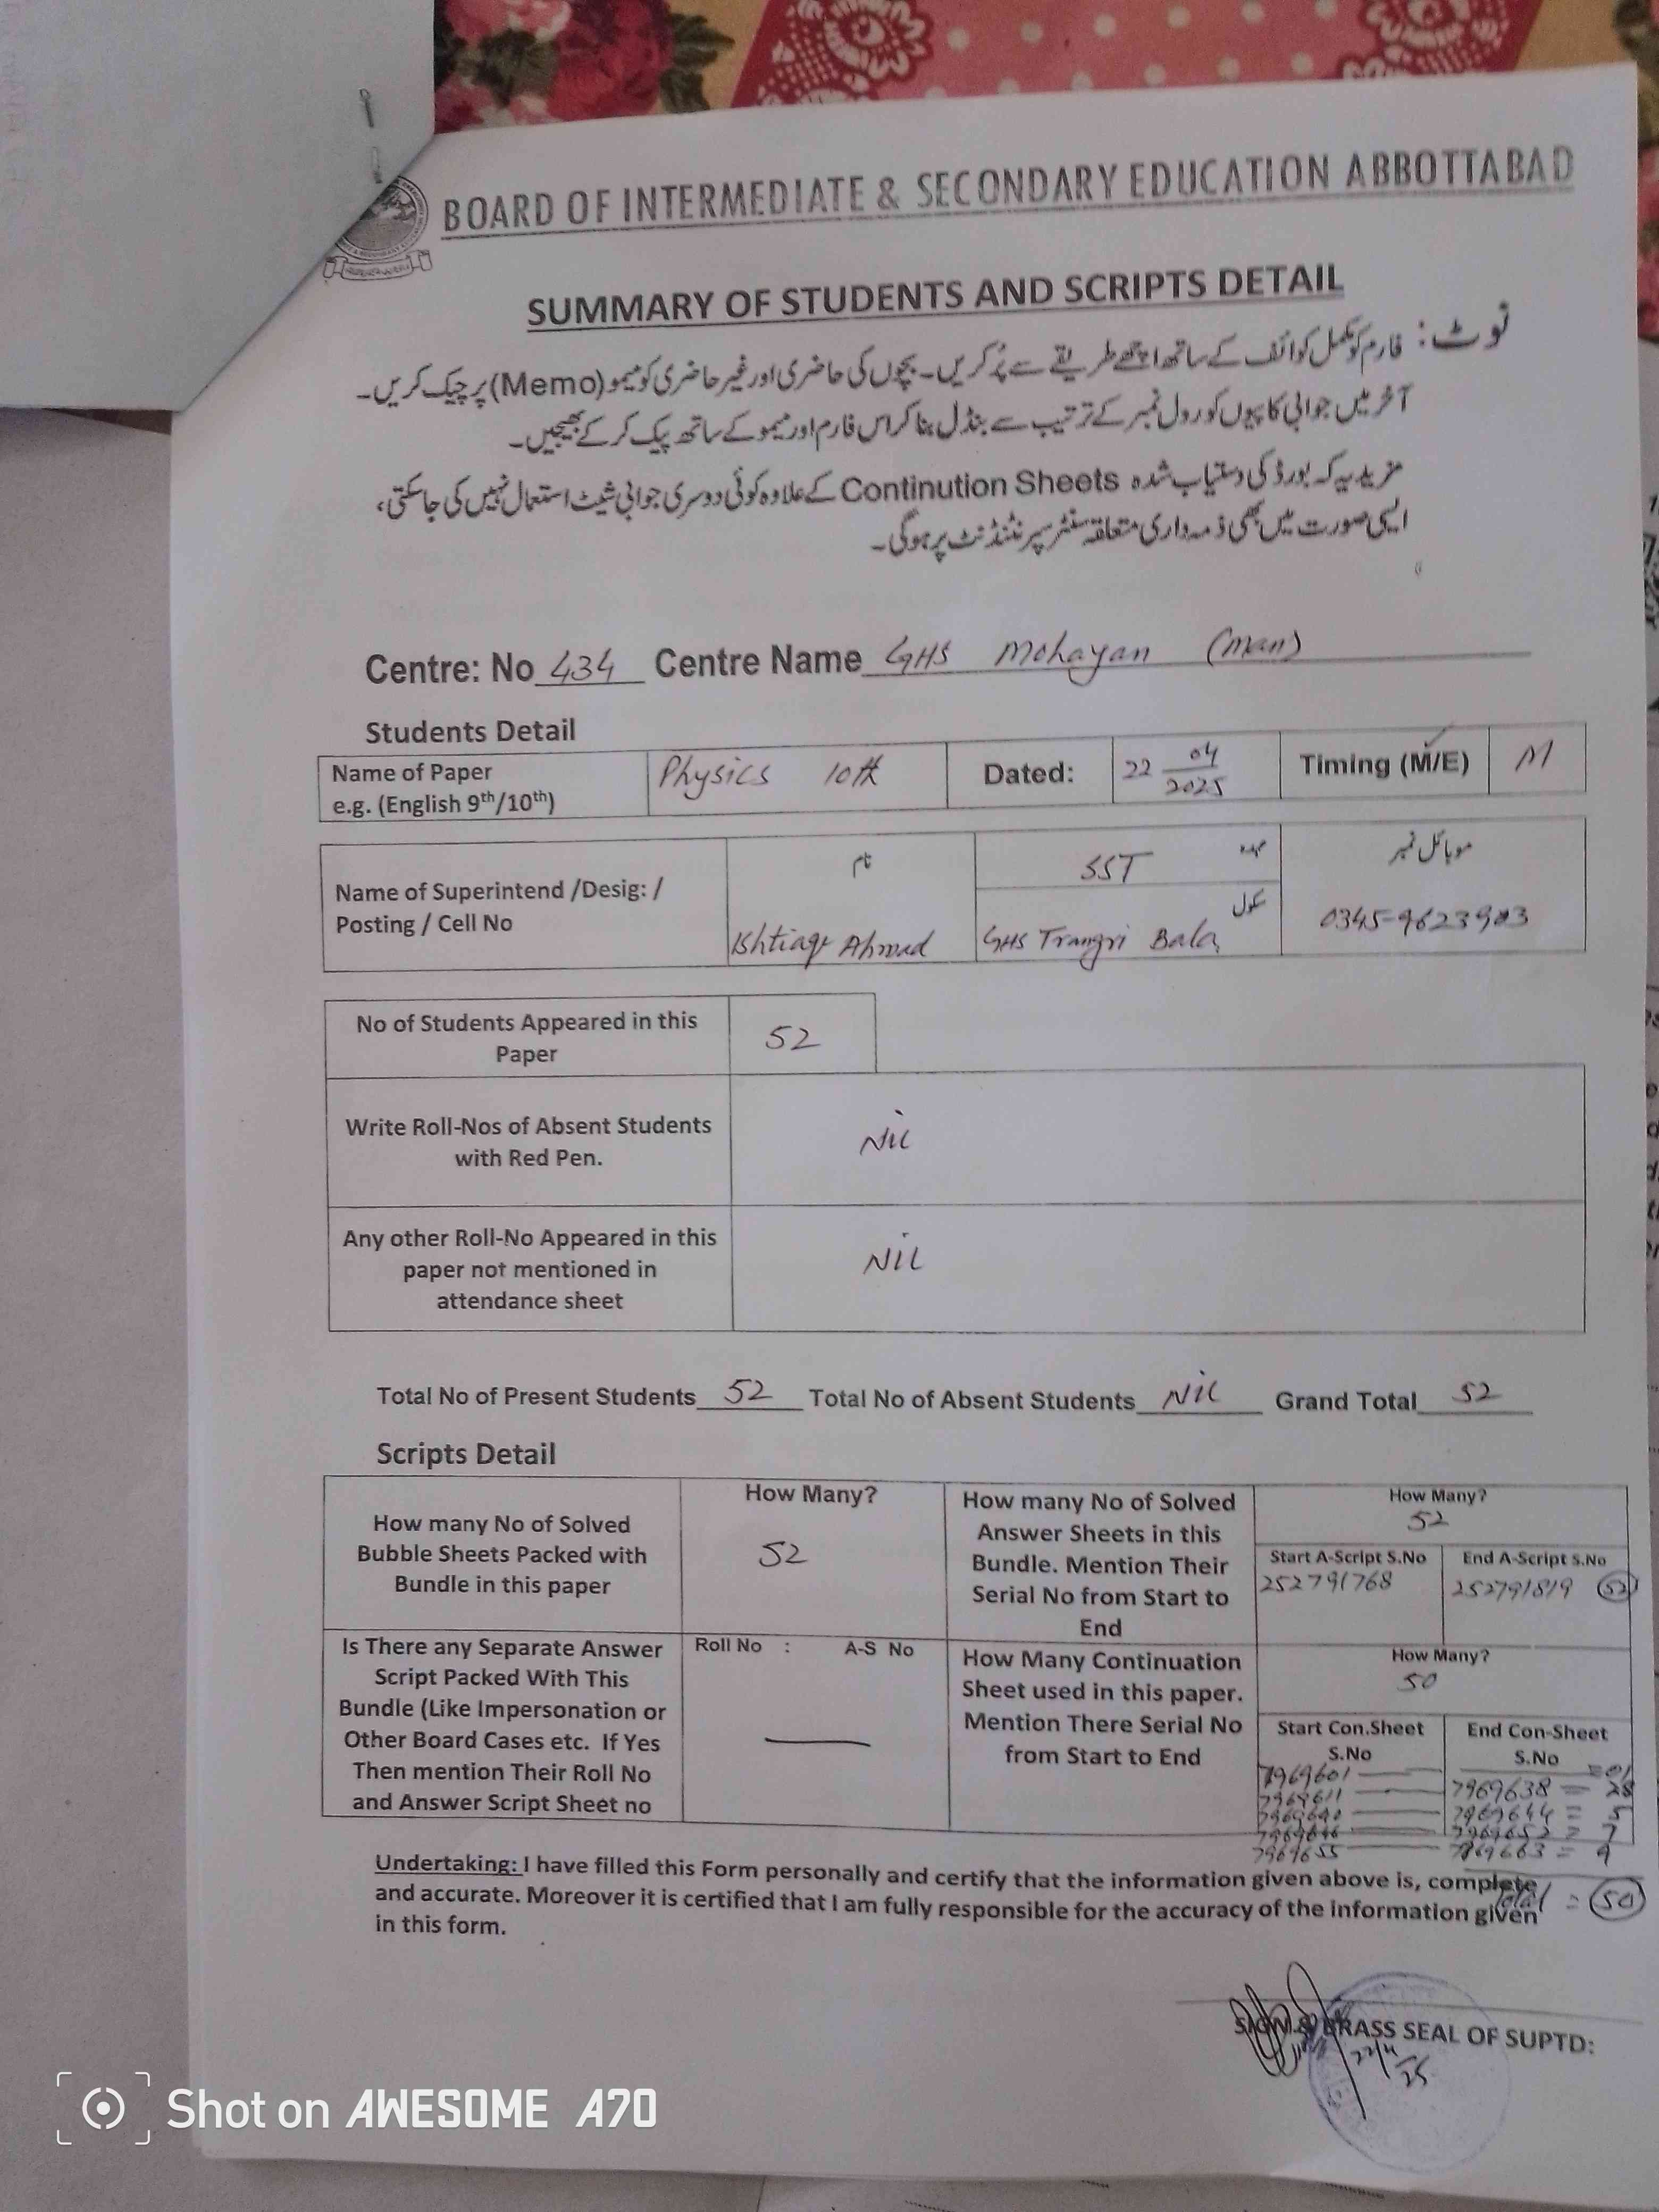 BOARD OF INTERMEDIATE & SECONDARY EDUCATION ABBOTTABAD
SUMMARY OF STUDENTS AND SCRIPTS DETAIL
نوٹ: فارم کو مکمل کوائف کے ساتھ اچھے طریقے سے پُر کریں۔ بچوں کی حاضری اور غیر حاضری کو میمو (Memo) پر چیک کریں۔
آخر میں جوابی کاپیوں کو رول نمبر کے ترتیب سے بنڈل بنا کر اس فارم اور میمو کے ساتھ پیک کر کے بھیجیں۔
مزید یہ کہ بورڈ کی دستیاب شدہ Continution Sheets کے علاوہ کوئی دوسری جوابی شیٹ استعمال نہیں کی جا سکتی،
ایسی صورت میں بھی ذمہ داری متعلقہ سنٹر سپرنٹنڈنٹ پر ہوگی۔
Centre: No 434 Centre Name GHS Mohayan (Man)
Students Detail
Name of Paper
e.g. (English 9th/10th)
Physics 10th
Dated:
22 04
2025
Timing (M/E)
M
Name of Superintend /Desig: /
Posting / Cell No
نام
Ishtiaq Ahmad
عہدہ
SST
سکول
GHS Trangri Bala
موبائل نمبر
No of Students Appeared in this
Paper
52
Write Roll-Nos of Absent Students
with Red Pen.
Nil
Any other Roll-No Appeared in this
paper not mentioned in
attendance sheet
Nil
Total No of Present Students 52 Total No of Absent Students Nil Grand Total 52
Scripts Detail
How many No of Solved
Bubble Sheets Packed with
Bundle in this paper
How Many?
52
How many No of Solved
Answer Sheets in this
Bundle. Mention Their
Serial No from Start to
End
How Many?
52
Start A-Script S.No
252791768
End A-Script S.No
252791819 52
Is There any Separate Answer
Script Packed With This
Bundle (Like Impersonation or
Other Board Cases etc. If Yes
Then mention Their Roll No
and Answer Script Sheet no
Roll No : A-S No
How Many Continuation
Sheet used in this paper.
Mention There Serial No
from Start to End
How Many?
50
Start Con.Sheet
S.No
End Con-Sheet
S.No
7969601 = 01
7969611 7969638 = 28
7969640 7969644 = 5
7969646 7969652 = 7
7969655 7969663 = 9
Total = 50
Undertaking: I have filled this Form personally and certify that the information given above is, complete
and accurate. Moreover it is certified that I am fully responsible for the accuracy of the information given
in this form.
SIGN & BRASS SEAL OF SUPTD:
22/4
25
Shot on AWESOME A70